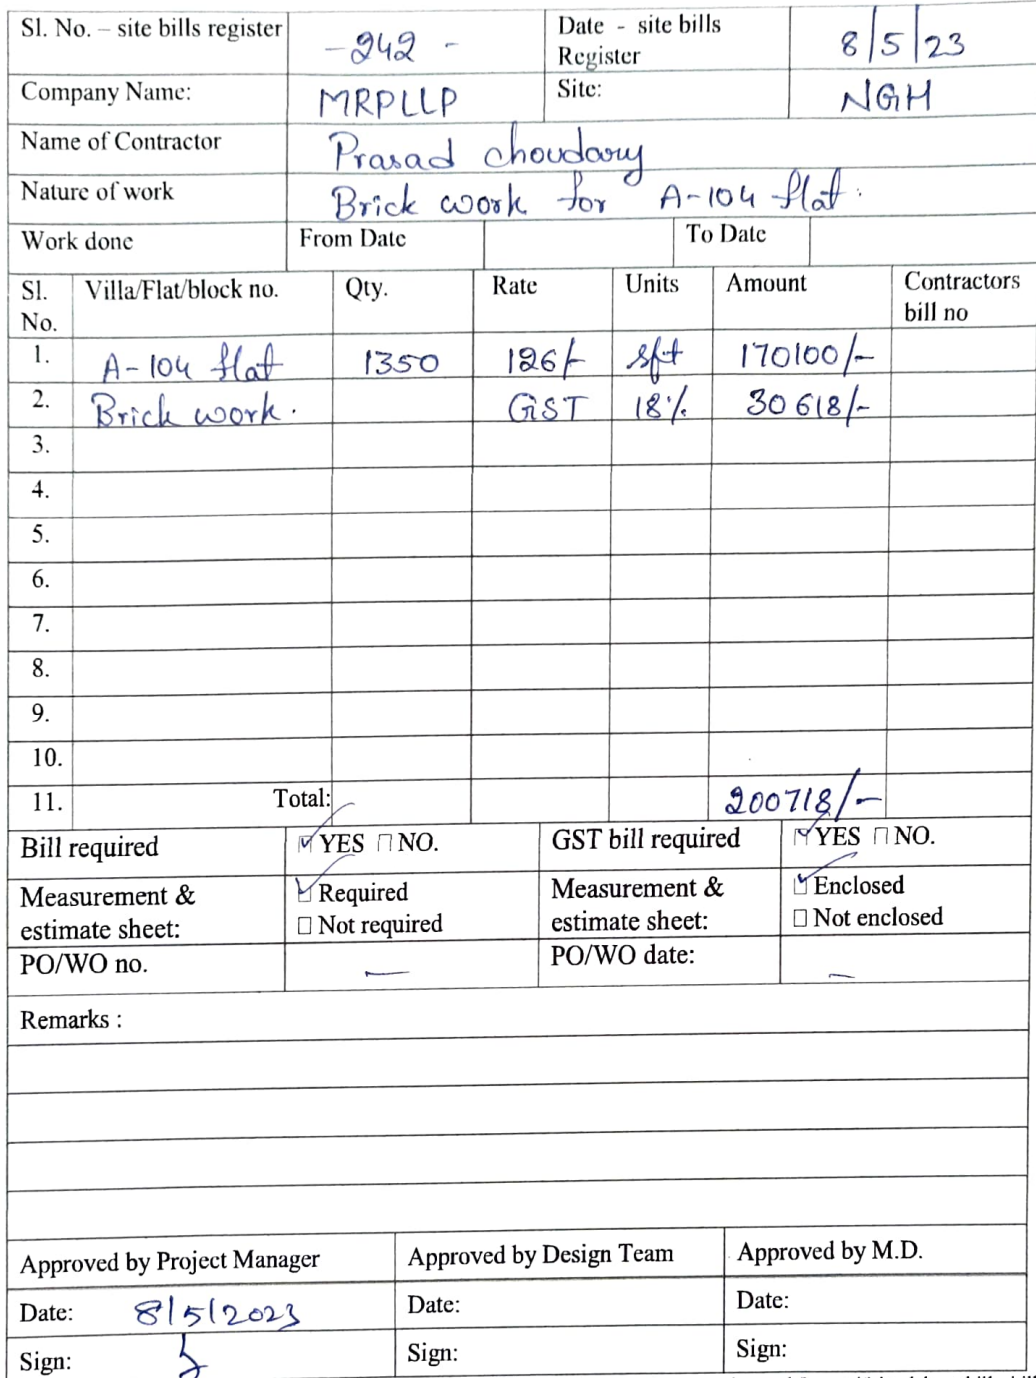 Sl. No. – site bills register -242 - Date - site bills Register 8/5/23
Company Name: MRPLLP Site: NGH
Name of Contractor Prasad choudary
Nature of work Brick work for A-104 flat.
Work done From Date To Date
Sl. No. Villa/Flat/block no. Qty. Rate Units Amount Contractors bill no
1. A-104 flat 1350 126/- sft 170100/-
2. Brick work. GST 18% 30618/-
3.
4.
5.
6.
7.
8.
9.
10.
11. Total: 200718/-
Bill required ☑ YES ☐ NO. GST bill required ☑ YES ☐ NO.
Measurement & estimate sheet: ☑ Required Measurement & estimate sheet: ☑ Enclosed
☐ Not required ☐ Not enclosed
PO/WO no. — PO/WO date: —
Remarks :
Approved by Project Manager Approved by Design Team Approved by M.D.
Date: 8/5/2023 Date: Date:
Sign: Sign: Sign: